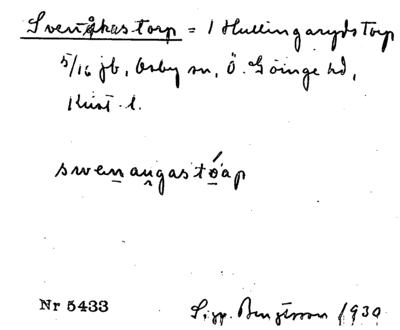 Svenåkastorp = 1 Hullingarydstorp
5/16 jb, Osby sn, Ö. Göinge hd,
Krist. l.
swenaŋgastóap
Nr 5433
Sigg. Bengtsson 1930